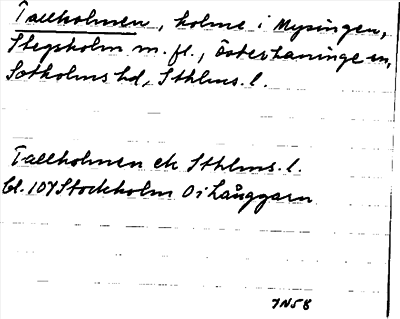 Tallholmen, holme i Mysingen,
Stegsholm m. fl., Österhaninge sn,
Sotholms hd, Sthlms. l.
Tallholmen ek Sthlms. l.
bl. 107 Stockholm O i Långgarn
JN58